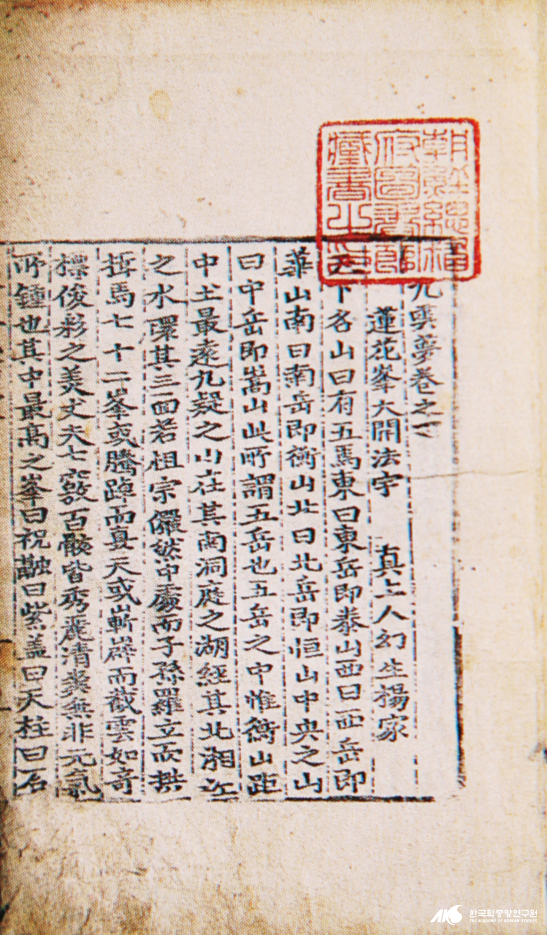 朝鮮總督
府圖書館
藏書之印
九雲夢卷之
蓮花峯大開法宇　真上人幻生楊家
天下名山曰有五焉東曰東岳即泰山西曰西岳即
華山南曰南岳即衡山北曰北岳即恒山中央之山
曰中岳即嵩山此所謂五岳也五岳之中惟衡山距
中土最遠九疑之山在其南洞庭之湖經其北湘江
之水環其三面若祖宗儼然中處而子孫羅立而拱
揖焉七十二峯或騰踔而矗天或嶄嶭而截雲如奇
標俊彩之美丈夫七竅百骸皆秀麗清爽無非元氣
所鍾也其中最高之峯曰祝融曰紫盖曰天柱曰石
한국학중앙연구원
THE ACADEMY OF KOREAN STUDIES